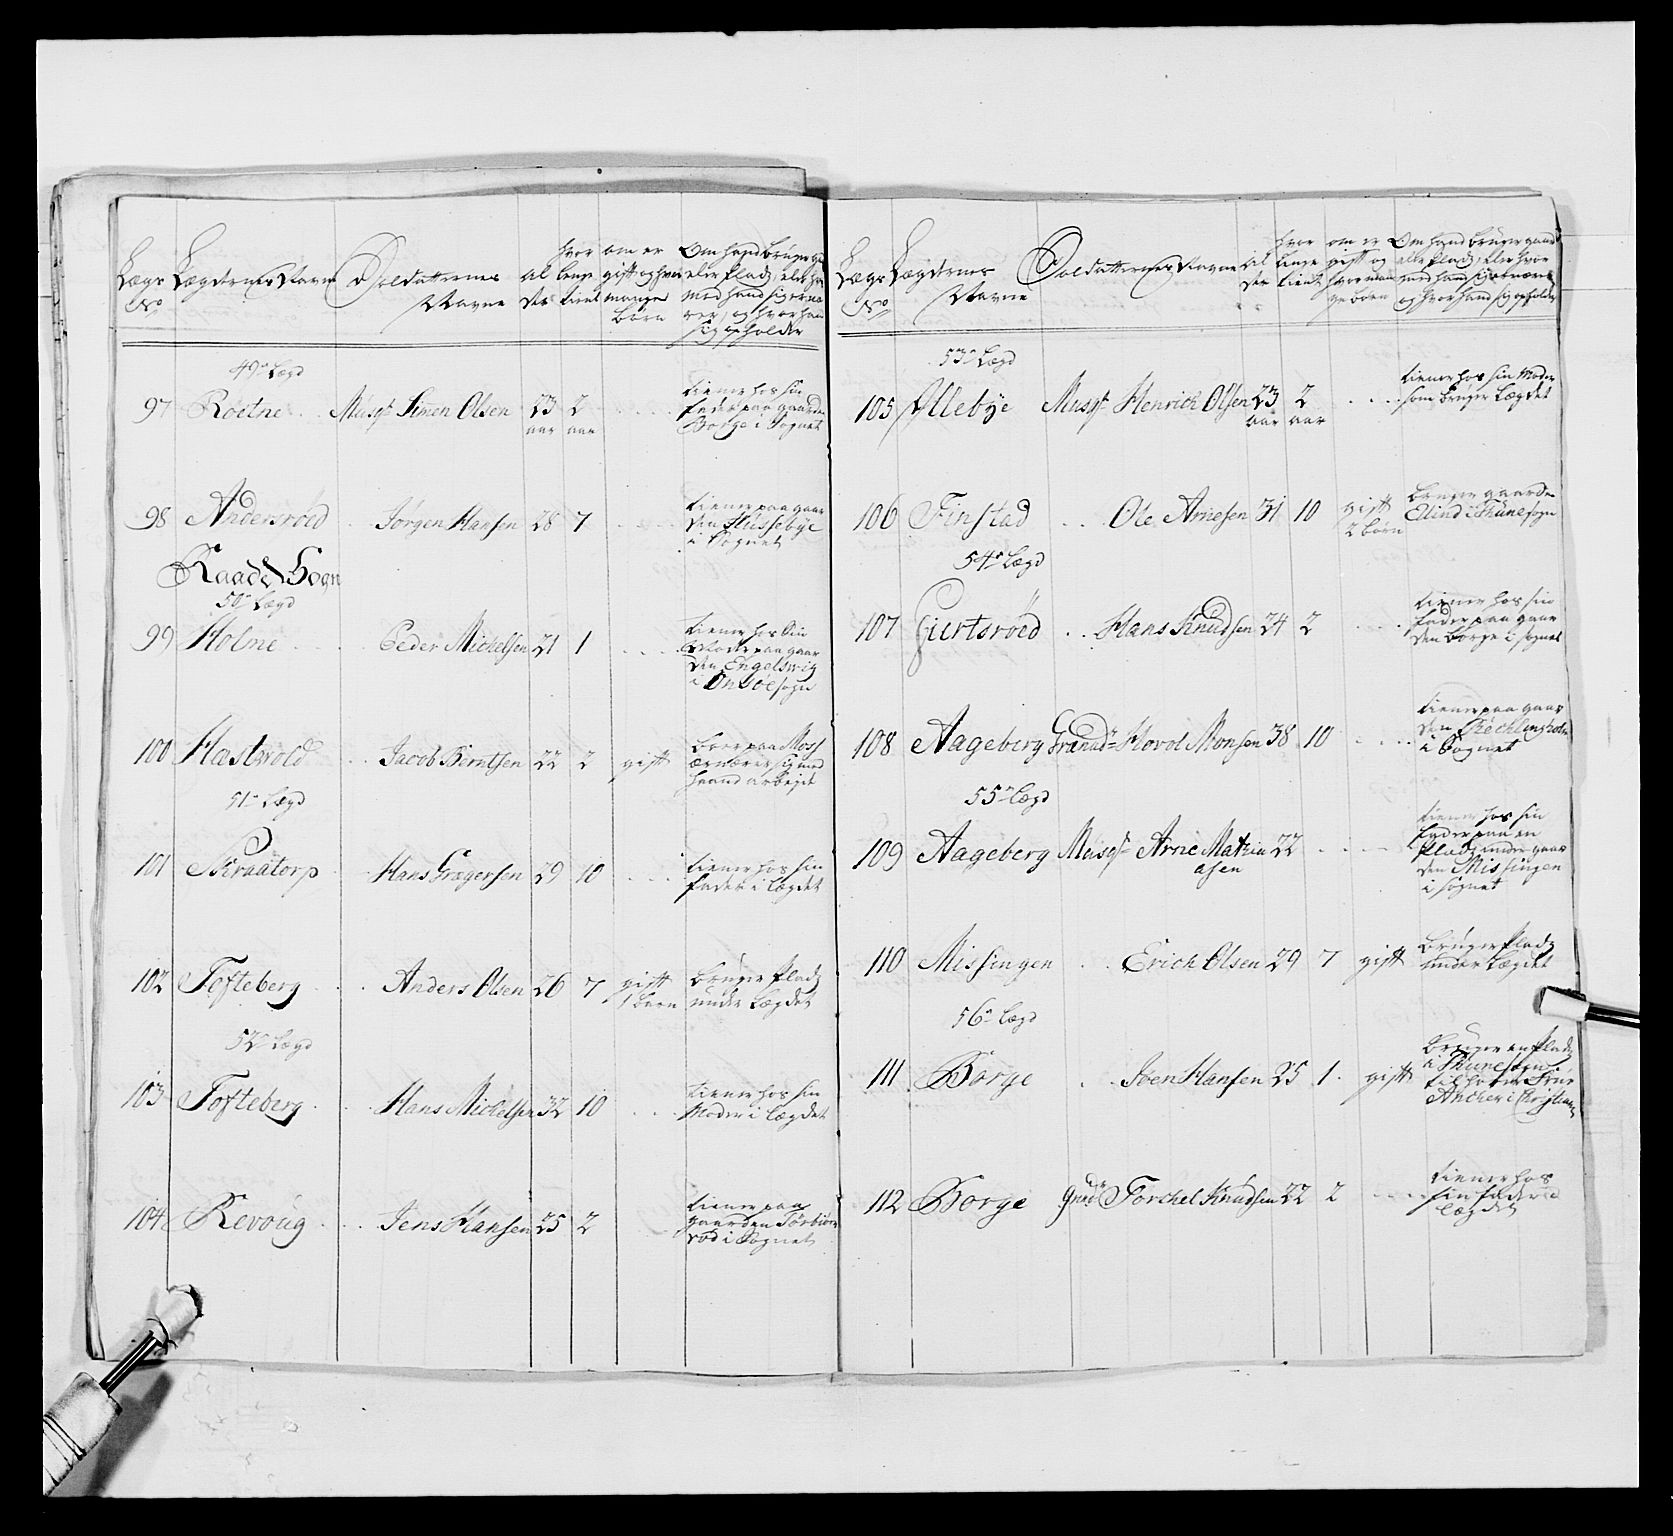 Lægs No
Lægdernes Navne
Soldatternes Navne
Al der
hvor lenge tient
om er gift og hvor mange børn
Om hand bruger
eller Plads, eller
med hand sig ernæ
rer, og hvor hand
sig opholder
49de Lægd
97 Röetne . . Musqt. Simen Olsen 23 aar 2 aar . . . .
tiener hos sin
Fader paa gaarden
Borge i Sognet
98 Andersröed . Jörgen Hansen 28 7 . . . .
tiener paa gaar
den Hüssebye
i Sognet
Raade Sogn
50de Lægd
99 Holme . . . Peder Michelsen 21 1 . . . .
tiener hos sin
Moder paa gaar
den Engelswig
i Onsöe sogn
100 Hastwold . . Jacob Berntsen 22 2 gift
boer paa Moss
ærnærer sig med
haand arbejde
51de Lægd
101 Skraatorp . Hans Gregersen 29 10 . . . .
tiener hos sin
fader i Lægdet
102 Tofteberg . . . Anders Olsen 26 7 gift 1 barn
bruger Plads
under Lægdet
52de Lægd
103 Tofteberg . . . Hans Michelsen 32 10 . . .
tiener hos sin
Moder i Lægdet
104 Revoüg . . . . Jens Hansen 25 2 . .
tiener paa
gaarden Törbiörs
röd i Sognet
Lægs No
Lægdernes Navne
Soldatternes Navne
Al der
hvor lenge tient
om er gift og hvor man
ge børn
Om hand bruger gaard
eller Plads, eller hvor
med hand sig ernærer
og hvor hand sig opholder
53de Lægd
105 Allebye Musqt. Henrich Olsen 23 aar 2 aar . . . .
tiener hos sin Moder
som bruger Lægdet
106 Finstad . . . Ole Arnesen 31 10 gift 2 børn
bruger gaarden
Elind i Thüne sogn
54de Lægd
107 Giertsröed . . Hans Knudsen 24 2 . . . .
tiener hos sin
fader paa gaar
den Borge i sognet
108 Aageberg Granad: Hovol Monsen 38 10 . . . .
tiener paa gaar
den
i Sognet
55de Lægd
109 Aageberg Musqt. Arne Mathi
asen 22 . . . .
tiener hos sin
fader paa en
Plads under gaar
den Missingen
i sognet
110 Missingen . . Erich Olsen 29 7 gift
bruger Plads
under Lægdet
56de Lægd
111 Borge . Iven Hansen 25 1 . gift
bruger en Plads
i Thüne sogn
tilhører Frue
Ancher i Christiania
112 Borge Torchel Knudsen 22 2 . . . .
tiener hos
sin fader i
Lægdet